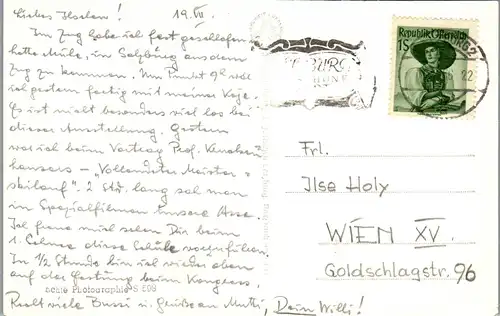 Liebes Ilselein!
19. VII.
Im Zug habe ich fest geschlafen,
hatte Mühe, in Salzburg aus dem
Zug zu kommen. Um Punkt 9h war
ich gestern fertig mit meiner Koje.
Es ist nicht besonders viel los bei
dieser Ausstellung. Gestern
war ich beim Vortrag Prof. Kruckenhausers
- "Vollendeter Meister-
skilauf". 2 Std. lang sah man
in Spezialfilmen unsere Asse.
Ich freue mich schon Dir beim
1. Schnee diese Schule vorzuführen.
In 1/2 Stunde bin ich wieder oben
auf der Festung beim Kongress.
Recht viele Bussi u. Grüße an Mutti, Dein Willi!
Echte Photographie S 508
Republik Österreich
1S
Frl.
Ilse Holy
WIEN XV.
Goldschlagstr. 96